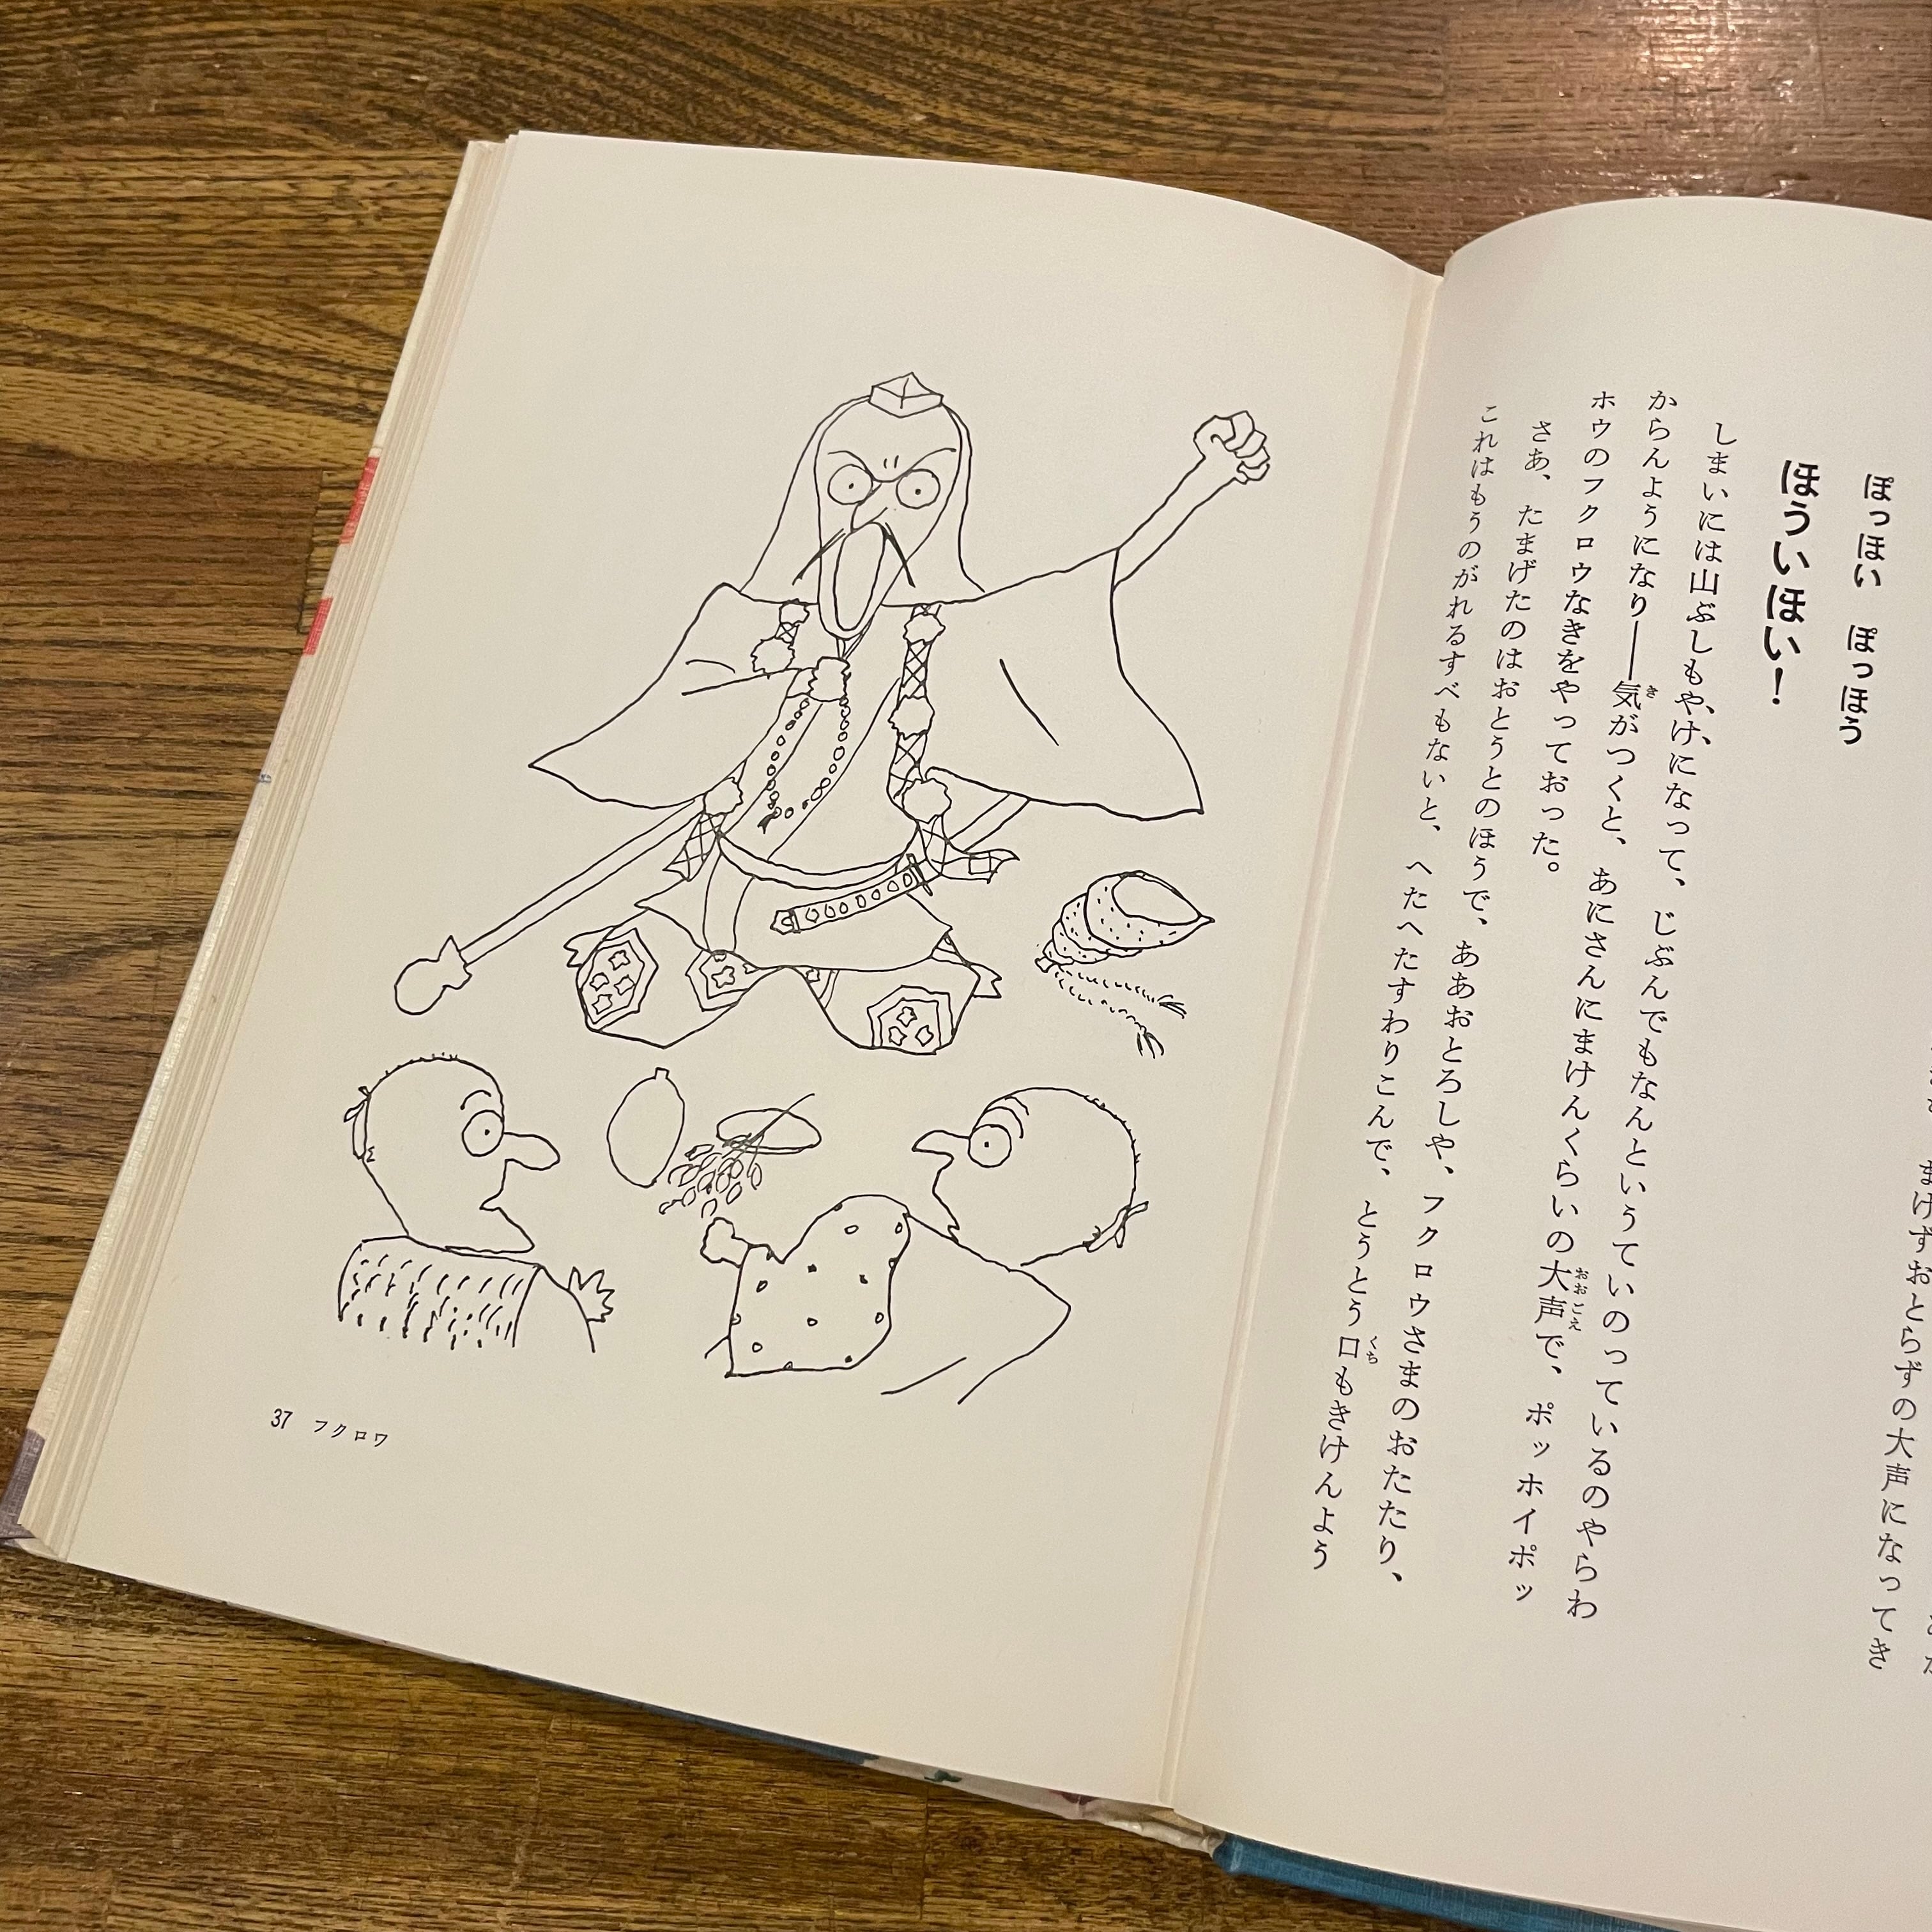 まけずおとらずの大声になってき
ぽっほい　ぽっほう
ほういほい！
しまいには山ぶしもやけになって、じぶんでもなんというていのっているのやらわ
き　おおごえ
からんようになり――気がつくと、あにさんにまけんくらいの大声で、ポッホイポッ
ホウのフクロウなきをやっておった。
さあ、たまげたのはおとうとのほうで、ああおとろしや、フクロウさまのおたたり、
くち
これはもうのがれるすべもないと、へたへたすわりこんで、とうとう口もきけんよう
37　フクロワ